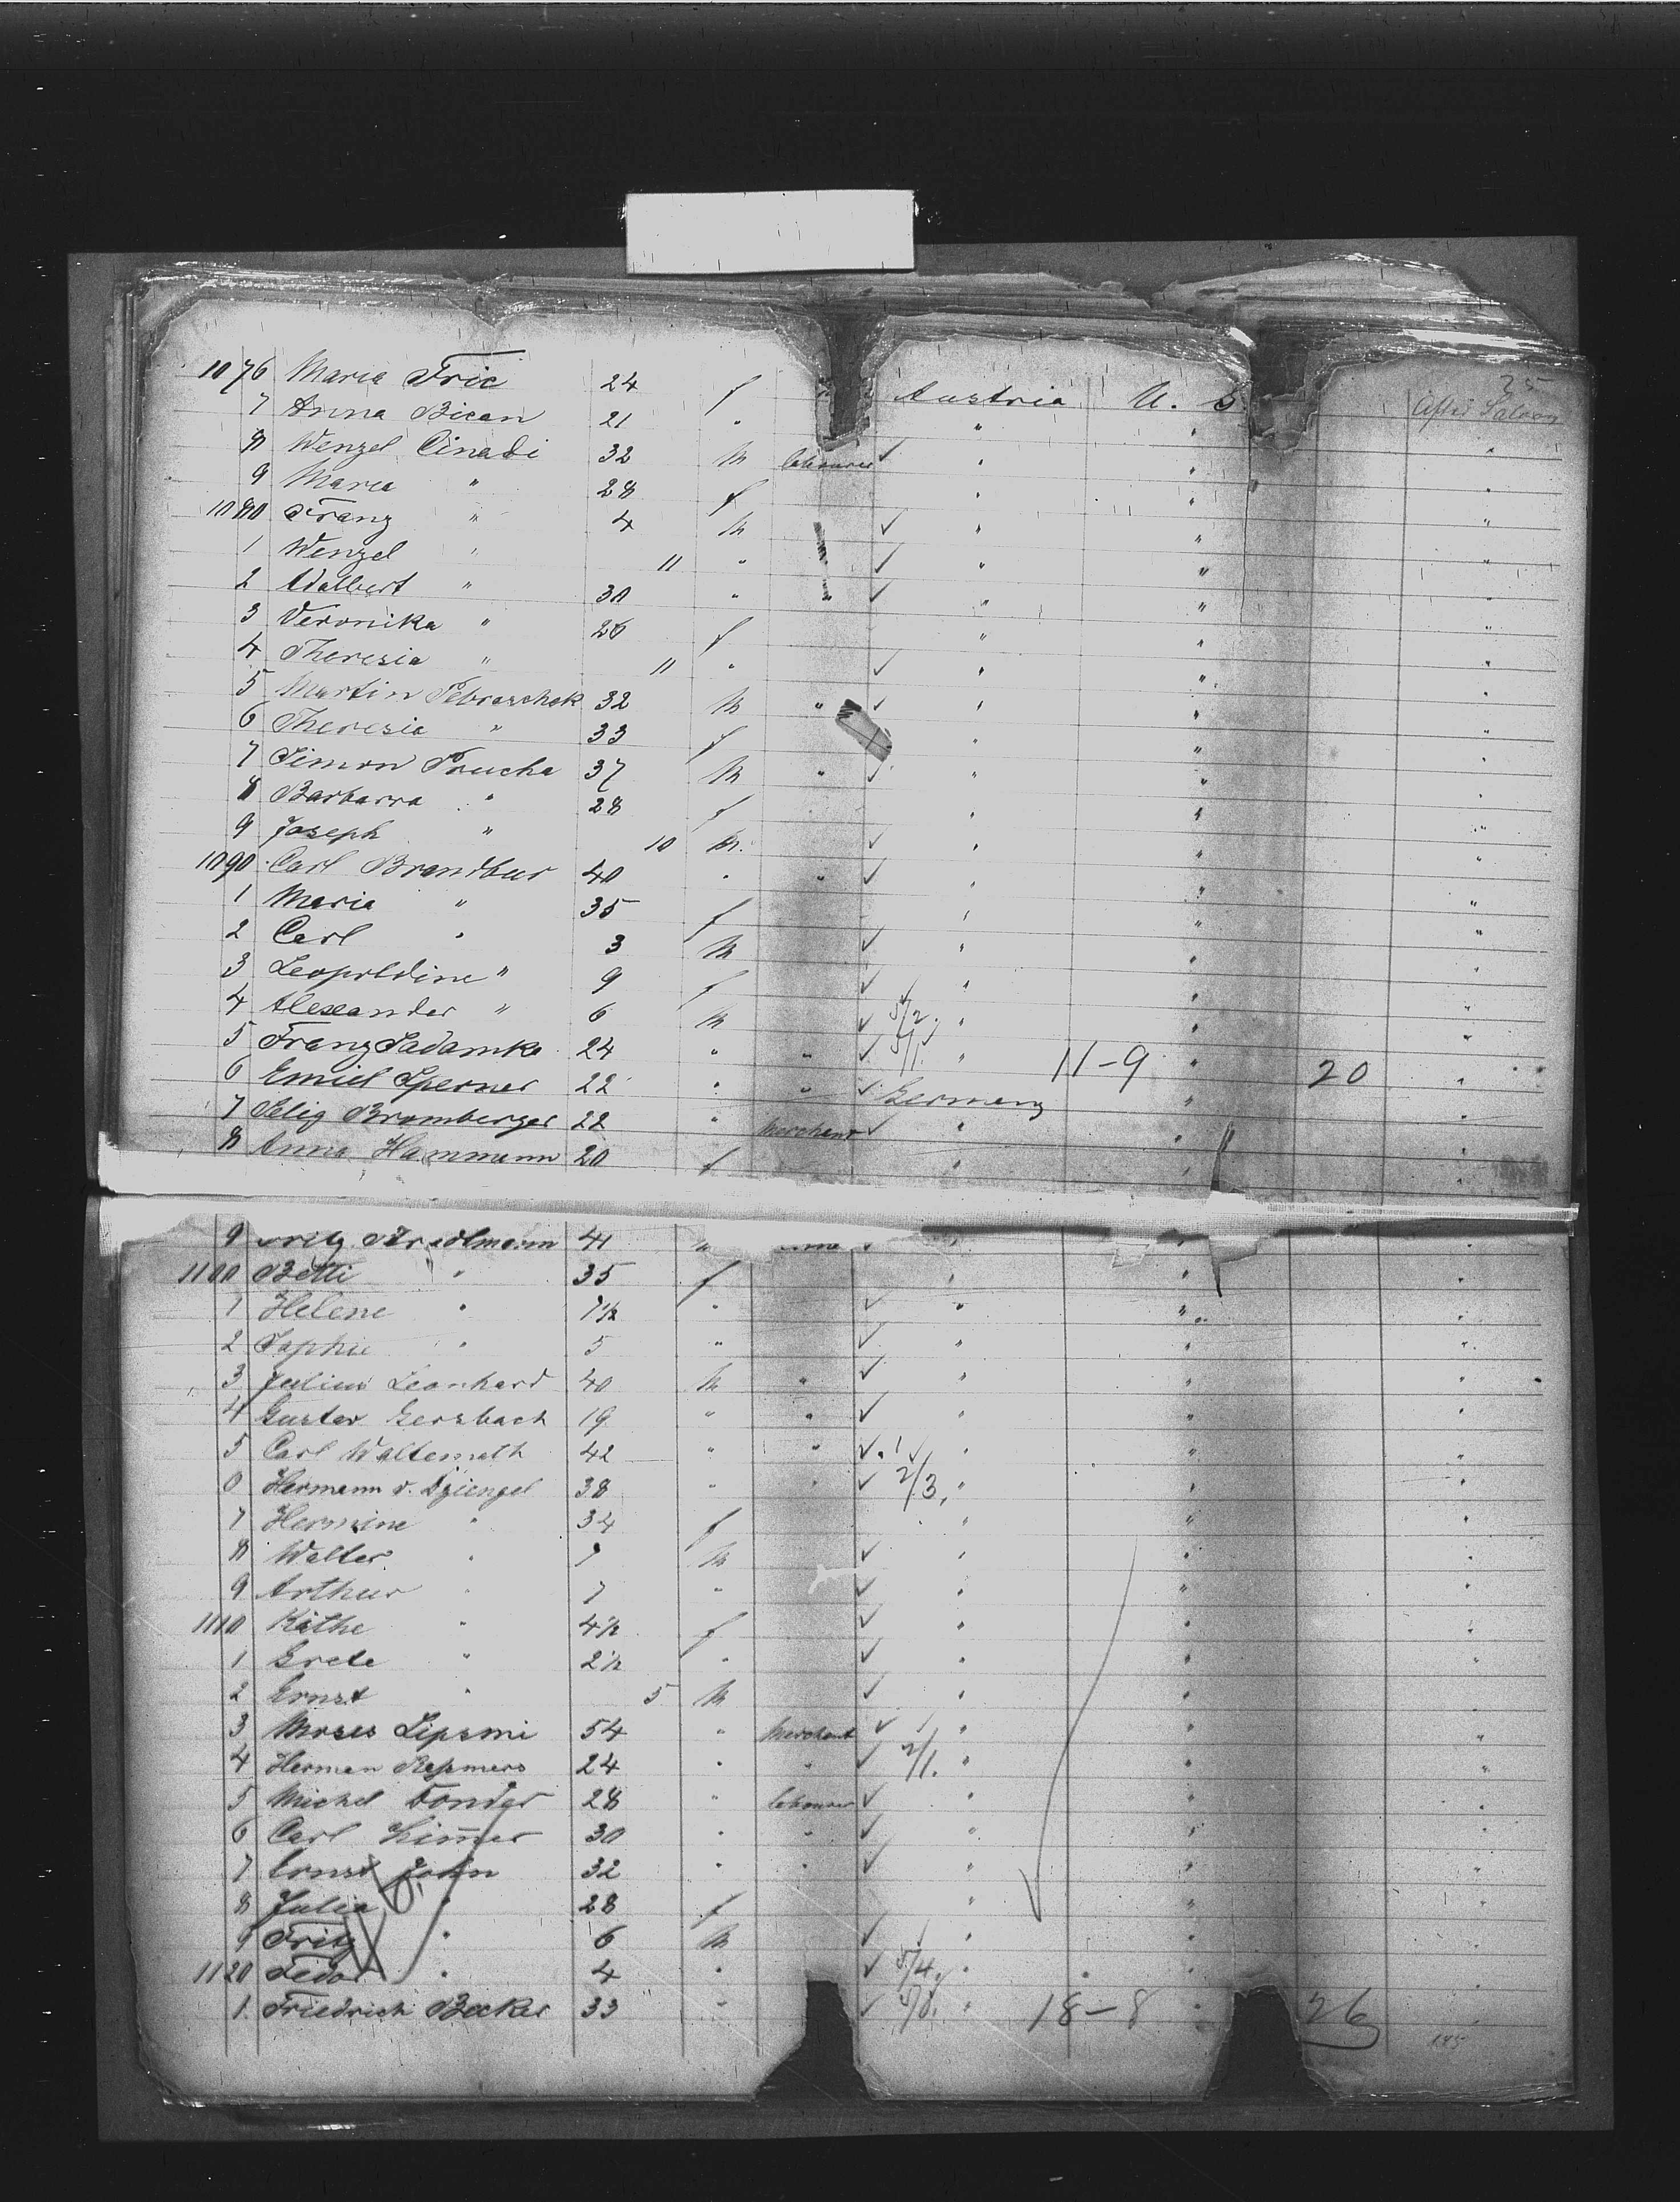 25
1076 Maria Fric 24 f Austria U. S. After Saloon
7 Anna Bican 21 " " " "
8 Wenzel Cinadi 32 M labourer ✓ " " "
9 Maria " 28 f " " "
1080 Franz " 4 M ✓ " " "
1 Wenzel " 11 " ✓ " " "
2 Adalbert " 30 " " ✓ " " "
3 Veronika " 26 f " " "
4 Theresia " 11 " ✓ " " "
5 Martin Petraschek 32 M " ✓ " " "
6 Theresia " 33 f " " "
7 Simon Prucha 37 M " ✓ " " "
8 Barbarra " 28 f " " "
9 Joseph " 10 M. ✓ " " "
1090 Carl Brandbur 40 " " ✓ " " "
1 Maria " 35 f " " "
2 Carl " 3 M ✓ " " "
3 Leopoldine " 9 f ✓ " " "
4 Alexander " 6 M ✓ 5/2. " " "
5 Franz Sadamka 24 " " ✓ 5/1. " 11-9 " 20 "
6 Emiel Sperner 22 " " ✓ Germany " "
7 Selig Bromberger 22 " Merchant ✓ " " "
8 Anna Hammann 20 f " " "
9 41 " ✓ " " "
1100 Betti " 35 f " " "
1 Helene " 7½ " ✓ " " "
2 Sophie " 5 " ✓ " " "
3 Julius Leonhard 40 M " ✓ " " "
4 Gustav Gersbach 19 " " ✓ " " "
5 Carl Waltemath 42 " " ✓ " " "
6 Hermann v. 38 " " ✓ 2/3. " " "
7 Hermine " 34 f " " "
8 Walter " 9 M ✓ " " "
9 Arthur " 7 " ✓ " " "
1110 Käthe " 4½ f ✓ " " "
1 Grete " 2½ " ✓ " " "
2 Ernst " 5 M ✓ " " "
3 Moses Lipsmi 54 " Merchant ✓ " " "
4 Herman 24 " " ✓ 2/1. " " "
5 Michel Fonder 28 " labourer ✓ " " "
6 Carl 30 " " ✓ " " "
7 Ernst John 32 " " ✓ " " "
8 Julia " 28 f " " "
9 Fritz " 6 M ✓ " " "
1120 Fedor " 4 " ✓ 5/4. " " "
1. Friedrich Becker 33 " ✓ " 18-8 " 26 "
145